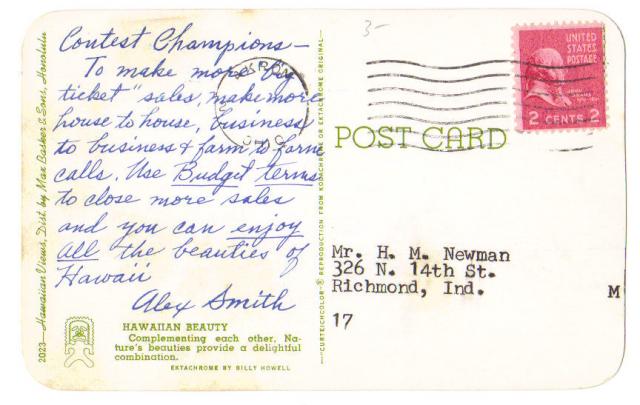 3-
Contest Champions—
To make more "big
ticket" sales, make more
house to house, business
to business & farm to farm
calls. Use Budget terms
to close more sales
and you can enjoy
all the beauties of
Hawaii
Alex Smith
HAWAIIAN BEAUTY
Complementing each other, Na-
ture's beauties provide a delightful
combination.
EKTACHROME BY BILLY HOWELL
2023—Hawaiian Views, Dist. by Max Basker & Sons, Honolulu
—CURTEICHCOLOR® REPRODUCTION FROM KODACHROME OR EKTACHROME ORIGINAL—
POST CARD
UNITED
STATES
POSTAGE
JOHN
ADAMS
2 CENTS 2
Mr. H. M. Newman
326 N. 14th St.
Richmond, Ind.
M
17